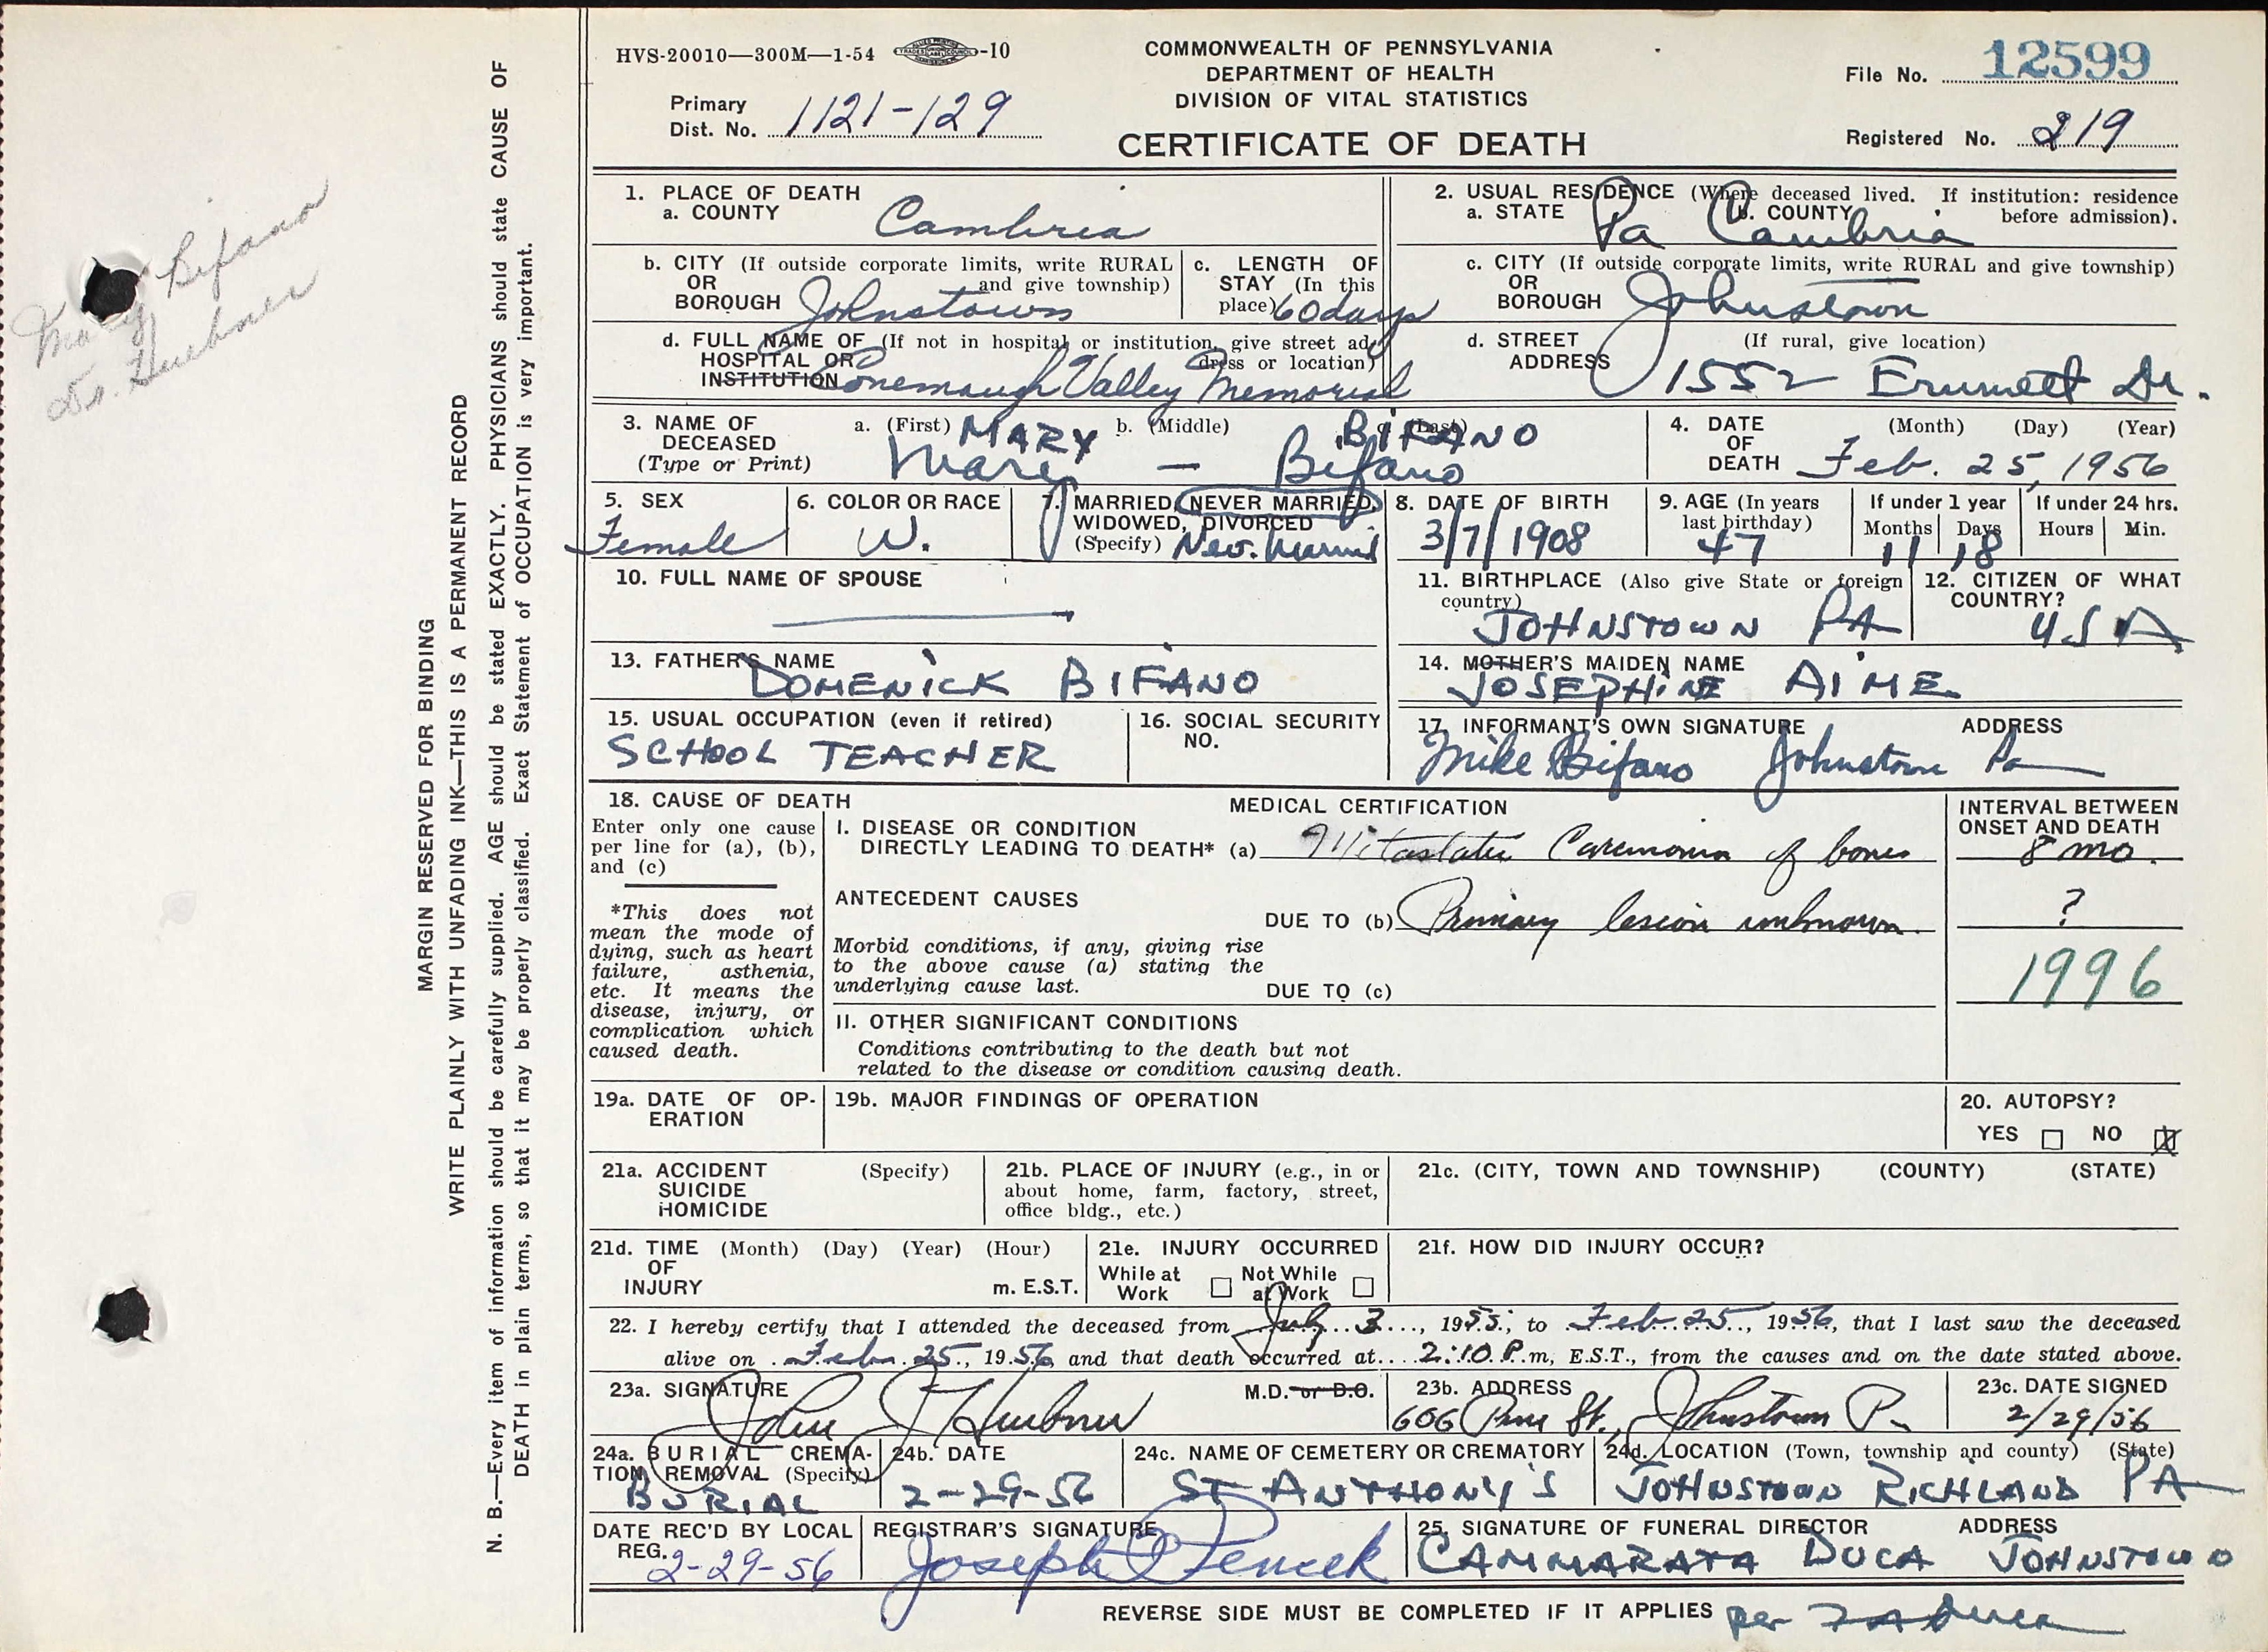 HVS-20010—300M—1-54 -10
COMMONWEALTH OF PENNSYLVANIA
DEPARTMENT OF HEALTH
DIVISION OF VITAL STATISTICS
CERTIFICATE OF DEATH
File No. 12599
Primary
Dist. No. 1121-129
Registered No. 219
Mary Bifano
Dr. Huebner
MARGIN RESERVED FOR BINDING
WRITE PLAINLY WITH UNFADING INK—THIS IS A PERMANENT RECORD
N. B.—Every item of information should be carefully supplied. AGE should be stated EXACTLY. PHYSICIANS should state CAUSE OF
DEATH in plain terms, so that it may be properly classified. Exact Statement of OCCUPATION is very important.
1. PLACE OF DEATH
a. COUNTY Cambria
2. USUAL RESIDENCE (Where deceased lived. If institution: residence
before admission).
a. STATE Pa b. COUNTY Cambria
b. CITY (If outside corporate limits, write RURAL
OR and give township)
BOROUGH Johnstown
c. LENGTH OF
STAY (In this
place) 60 days
c. CITY (If outside corporate limits, write RURAL and give township)
OR
BOROUGH Johnstown
d. FULL NAME OF (If not in hospital or institution, give street ad-
HOSPITAL OR dress or location)
INSTITUTION Conemaugh Valley Memorial
d. STREET (If rural, give location)
ADDRESS 1552 Emmett Dr.
3. NAME OF
DECEASED
(Type or Print)
a. (First) b. (Middle) c. (Last)
MARY BIFANO
Mary — Bifano
4. DATE (Month) (Day) (Year)
OF
DEATH Feb. 25, 1956
5. SEX
Female
6. COLOR OR RACE
W.
7. MARRIED, NEVER MARRIED,
WIDOWED, DIVORCED
(Specify) Nev. Married
8. DATE OF BIRTH
3/7/1908
9. AGE (In years
last birthday)
47
If under 1 year
Months Days
11 18
If under 24 hrs.
Hours Min.
10. FULL NAME OF SPOUSE
11. BIRTHPLACE (Also give State or foreign
country)
JOHNSTOWN PA
12. CITIZEN OF WHAT
COUNTRY?
USA
13. FATHER'S NAME
DOMENICK BIFANO
14. MOTHER'S MAIDEN NAME
JOSEPHINE AIME
15. USUAL OCCUPATION (even if retired)
SCHOOL TEACHER
16. SOCIAL SECURITY
NO.
17. INFORMANT'S OWN SIGNATURE ADDRESS
Mike Bifano Johnstown Pa
18. CAUSE OF DEATH
Enter only one cause
per line for (a), (b),
and (c)
*This does not
mean the mode of
dying, such as heart
failure, asthenia,
etc. It means the
disease, injury, or
complication which
caused death.
MEDICAL CERTIFICATION
I. DISEASE OR CONDITION
DIRECTLY LEADING TO DEATH* (a) Metastatic Carcinoma of bones
ANTECEDENT CAUSES
DUE TO (b) Primary lesion unknown.
Morbid conditions, if any, giving rise
to the above cause (a) stating the
underlying cause last.
DUE TO (c)
II. OTHER SIGNIFICANT CONDITIONS
Conditions contributing to the death but not
related to the disease or condition causing death.
INTERVAL BETWEEN
ONSET AND DEATH
8 mo.
?
1996
19a. DATE OF OP-
ERATION
19b. MAJOR FINDINGS OF OPERATION
20. AUTOPSY?
YES NO X
21a. ACCIDENT (Specify)
SUICIDE
HOMICIDE
21b. PLACE OF INJURY (e.g., in or
about home, farm, factory, street,
office bldg., etc.)
21c. (CITY, TOWN AND TOWNSHIP) (COUNTY) (STATE)
21d. TIME (Month) (Day) (Year) (Hour)
OF
INJURY m. E.S.T.
21e. INJURY OCCURRED
While at Not While
Work at Work
21f. HOW DID INJURY OCCUR?
22. I hereby certify that I attended the deceased from July 3, 1955, to Feb. 25, 1956, that I last saw the deceased
alive on Feb. 25, 1956, and that death occurred at 2:10 P.m, E.S.T., from the causes and on the date stated above.
23a. SIGNATURE M.D. or D.O.
John J Huebner
23b. ADDRESS
606 Pine St., Johnstown Pa
23c. DATE SIGNED
2/29/56
24a. BURIAL CREMA-
TION, REMOVAL (Specify)
BURIAL
24b. DATE
2-29-56
24c. NAME OF CEMETERY OR CREMATORY
ST ANTHONY'S
24d. LOCATION (Town, township and county) (State)
JOHNSTOWN RICHLAND PA
DATE REC'D BY LOCAL
REG. 2-29-56
REGISTRAR'S SIGNATURE
Joseph Pencek
25. SIGNATURE OF FUNERAL DIRECTOR ADDRESS
CAMMARATA DUCA JOHNSTOWN
REVERSE SIDE MUST BE COMPLETED IF IT APPLIES per Duca